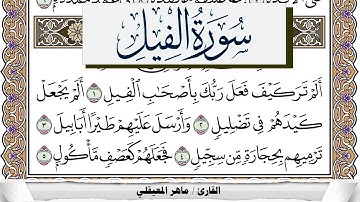 سُورَةُ الفِيلِ
أَلَمْ تَرَ كَيْفَ فَعَلَ رَبُّكَ بِأَصْحَٰبِ ٱلْفِيلِ ١ أَلَمْ يَجْعَلْ
كَيْدَهُمْ فِى تَضْلِيلٍ ٢ وَأَرْسَلَ عَلَيْهِمْ طَيْرًا أَبَابِيلَ ٣
تَرْمِيهِم بِحِجَارَةٍ مِّن سِجِّيلٍ ٤ فَجَعَلَهُمْ كَعَصْفٍ مَّأْكُولٍۭ ٥
القارئ / ماهر المعيقلي